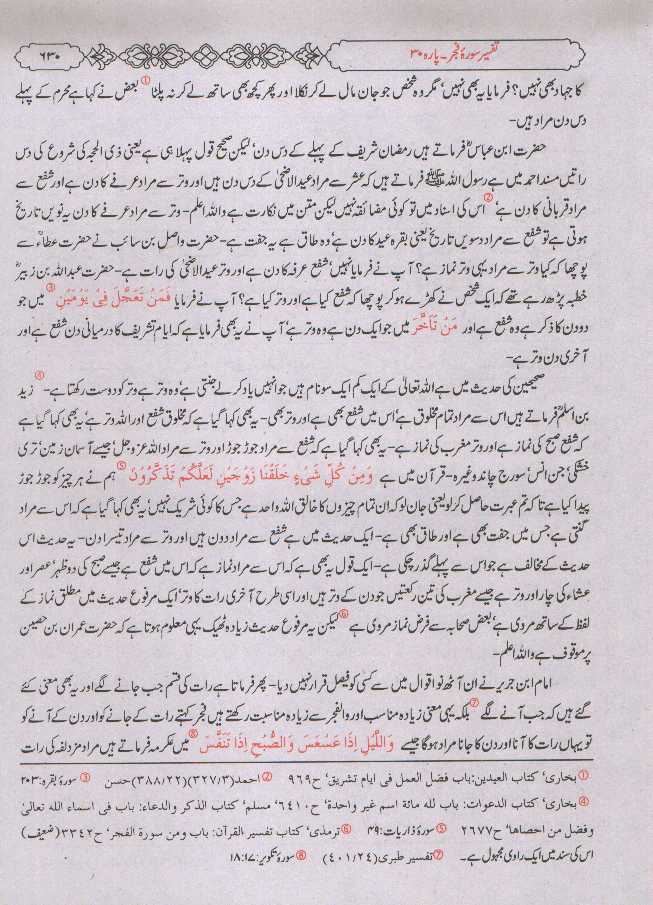 تفسیر سورۂ فجر۔ پارہ ۳۰
۶۳۰
کا جہاد بھی نہیں؟ فرمایا یہ بھی نہیں‘ مگر وہ شخص جو جان مال لے کر نکلا اور پھر کچھ بھی ساتھ لے کر نہ پلٹا ① بعض نے کہا ہے محرم کے پہلے
دس دن مراد ہیں-
حضرت ابن عباسؓ فرماتے ہیں رمضان شریف کے پہلے کے دس دن‘ لیکن صحیح قول پہلا ہی ہے یعنی ذی الحجہ کی شروع کی دس
راتیں مسند احمد میں ہے رسول اللہ ﷺ فرماتے ہیں کہ عشر سے مراد عید الاضحیٰ کے دس دن ہیں اور وتر سے مراد عرفے کا دن ہے اور شفع سے
مراد قربانی کا دن ہے ② اس کی اسناد میں تو کوئی مضائقہ نہیں لیکن متن میں نکارت ہے واللہ اعلم- وتر سے مراد عرفے کا دن یہ نویں تاریخ
ہوتی ہے تو شفع سے مراد دسویں تاریخ یعنی بقرہ عید کا دن ہے‘ وہ طاق ہے یہ جفت ہے- حضرت واصل بن سائب نے حضرت عطاءؒ سے
پوچھا کہ کیا وتر سے مراد یہی وتر نماز ہے؟ آپ نے فرمایا نہیں‘ شفع عرفہ کا دن ہے اور وتر عید الاضحیٰ کی رات ہے- حضرت عبداللہ بن زبیرؓ
خطبہ پڑھ رہے تھے کہ ایک شخص نے کھڑے ہو کر پوچھا کہ شفع کیا ہے اور وتر کیا ہے؟ آپ نے فرمایا فَمَنْ تَعَجَّلَ فِیْ یَوْمَیْنِ ③ میں جو
دو دن کا ذکر ہے وہ شفع ہے اور مَنْ تَاَخَّرَ میں جو ایک دن ہے وہ وتر ہے‘ آپ نے یہ بھی فرمایا ہے کہ ایام تشریق کا درمیانی دن شفع ہے اور
آخری دن وتر ہے-
صحیحین کی حدیث میں ہے اللہ تعالیٰ کے ایک کم ایک سو نام ہیں جو انہیں یاد کر لے جنتی ہے‘ وہ وتر ہے وتر کو دوست رکھتا ہے- ④ زید
بن اسلمؒ فرماتے ہیں اس سے مراد تمام مخلوق ہے‘ اس میں شفع بھی ہے اور وتر بھی- یہ بھی کہا گیا ہے کہ مخلوق شفع اور اللہ وتر ہے‘ یہ بھی کہا گیا ہے
کہ شفع صبح کی نماز ہے اور وتر مغرب کی نماز ہے- یہ بھی کہا گیا ہے کہ شفع سے مراد جوڑ جوڑ اور وتر سے مراد اللہ عزوجل‘ جیسے آسمان زمین‘ تری
خشکی‘ جن انس‘ سورج چاند وغیرہ- قرآن میں ہے وَمِنْ کُلِّ شَیْءٍ خَلَقْنَا زَوْجَیْنِ لَعَلَّکُمْ تَذَکَّرُوْنَ ⑤ ہم نے ہر چیز کو جوڑ جوڑ
پیدا کیا ہے تا کہ تم عبرت حاصل کر لو یعنی جان لو کہ ان تمام چیزوں کا خالق اللہ واحد ہے جس کا کوئی شریک نہیں‘ یہ بھی کہا گیا ہے کہ اس سے مراد
گنتی ہے جس میں جفت بھی ہے اور طاق بھی ہے- ایک حدیث میں ہے شفع سے مراد دو دن ہیں اور وتر سے مراد تیسرا دن- یہ حدیث اس
حدیث کے مخالف ہے جو اس سے پہلے گذر چکی ہے- ایک قول یہ بھی ہے کہ اس سے مراد نماز ہے کہ اس میں شفع ہے جیسے صبح کی دو ظہر‘ عصر اور
عشاء کی چار اور وتر ہے جیسے مغرب کی تین رکعتیں جو دن کے وتر ہیں اور اسی طرح آخری رات کا وتر‘ ایک مرفوع حدیث میں مطلق نماز کے
لفظ کے ساتھ مروی ہے‘ بعض صحابہ سے فرض نماز مروی ہے ⑥ لیکن یہ مرفوع حدیث زیادہ ٹھیک یہی معلوم ہوتا ہے کہ حضرت عمران بن حصین
پر موقوف ہے واللہ اعلم-
امام ابن جریر نے ان آٹھ نو اقوال میں سے کسی کو فیصل قرار نہیں دیا- پھر فرماتا ہے رات کی قسم جب جانے لگے اور یہ بھی معنی کئے
گئے ہیں کہ جب آنے لگے ⑦ بلکہ یہی معنی زیادہ مناسب اور والفجر سے زیادہ مناسبت رکھتے ہیں فجر کہتے رات کے جانے کو اور دن کے آنے کو
تو یہاں رات کا آنا اور دن کا جانا مراد ہوگا جیسے وَاللَّیْلِ اِذَا عَسْعَسَ وَالصُّبْحِ اِذَا تَنَفَّسَ ⑧ میں عکرمہ فرماتے ہیں مراد مزدلفہ کی رات
① بخاری‘ کتاب العیدین: باب فضل العمل فی ایام تشریق‘ ح ۹۶۹ ② احمد (۳/۳۲۷)(۲۲/۳۸۸) حسن ③ سورۂ بقرہ:۲۰۳
④ بخاری‘ کتاب الدعوات: باب لله مائة اسم غیر واحدة‘ ح ۶۴۱۰‘ مسلم‘ کتاب الذکر والدعاء: باب فی اسماء الله تعالیٰ
وفضل من احصاها‘ ح ۲۶۷۷ ⑤ سورۂ ذاریات:۴۹ ⑥ ترمذی‘ کتاب تفسیر القرآن: باب ومن سورة الفجر‘ ح ۳۳۴۲ (ضعیف)
اس کی سند میں ایک راوی مجہول ہے۔ ⑦ تفسیر طبری (۲۴/۴۰۱) ⑧ سورۂ تکویر:۱۷:۱۸